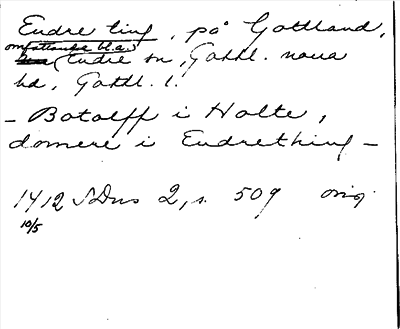 Endre ting, på Gottland,
omfattande bl.a.
(Endre sn, Gottl. norra
hd, Gottl. l.
- Botolff i Holte,
domere i Endrething -
1412 SDns 2, s. 509 orig.
10/5